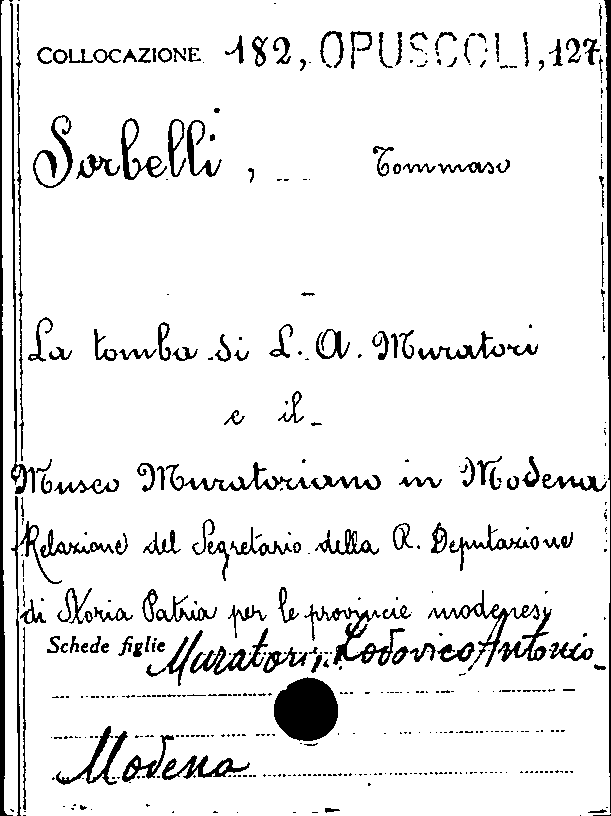 COLLOCAZIONE 182, OPUSCOLI, 127
Sorbelli, Tommaso
La tomba di L. A. Muratori
e il
Museo Muratoriano in Modena
Relazione del Segretario della R. Deputazione
di Storia Patria per le provincie modenesi
Schede figlie Muratori, Lodovico Antonio
Modena